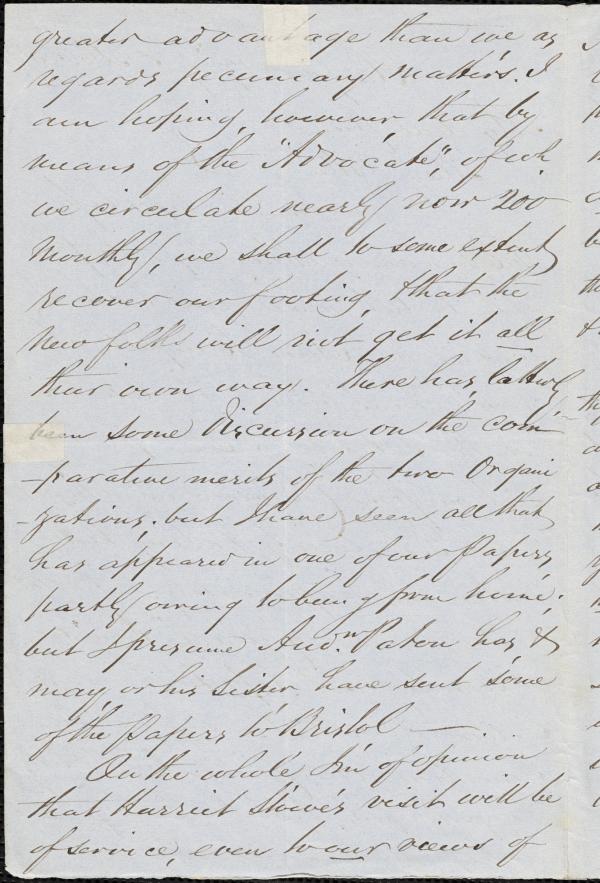 greater advantage than we as
regards pecuniary matters. I
am hoping, however that by
means of the "Advocate", of wh
we circulate nearly now 200
monthly, we shall to some extent
recover our footing, & that the
new folks will not get it all
their own way. There has latterly
been some discussion on the com-
-parative merits of the two Organi
-zations, but I have seen all that
has appeared in one of our Papers
partly owing to being from home;
but I presume Andw. Paton has &
may, or his Sister, have sent some
of the Papers to Bristol —
On the whole I'm of opinion
that Harriet Stowe's visit will be
of service, even to our views of